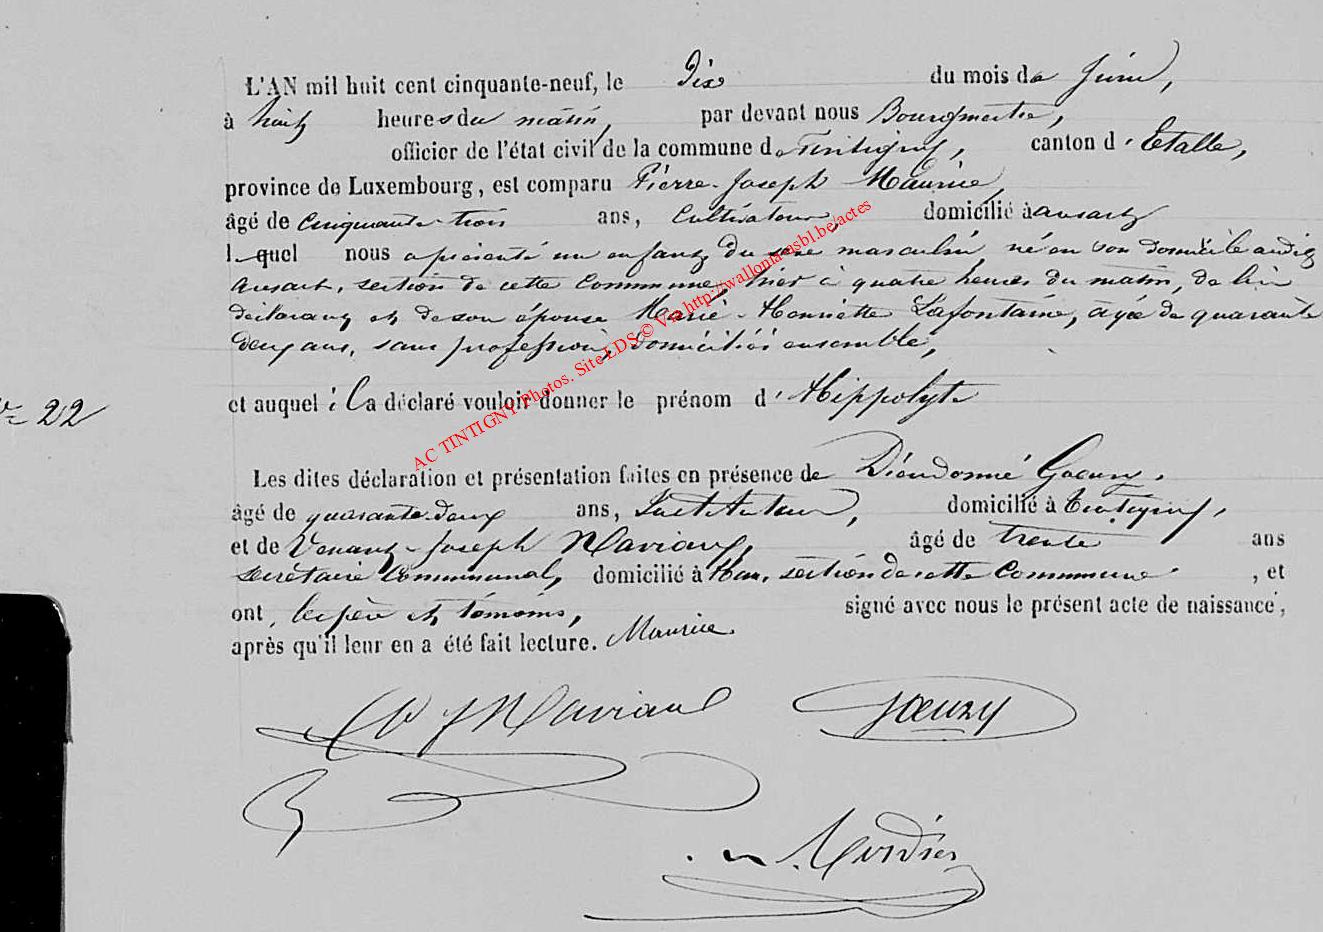 L'AN mil huit cent cinquante-neuf, le Dix du mois de Juin,
à huit heures du matin, par devant nous Bourgmestre,
officier de l'état civil de la commune de Tintigny, canton d'Etalle,
province de Luxembourg, est comparu Pierre-Joseph Maurice,
âgé de cinquante-trois ans, cultivateur, domicilié à ansart
lequel nous a présenté un enfant du sexe masculin, né en son domicile audit
ansart, section de cette commune, hier à quatre heures du matin, de lui
déclarant et de son épouse Marie-Henriette Lafontaine, âgée de quarante
deux ans, sans profession, domiciliés ensemble,
et auquel il a déclaré vouloir donner le prénom d'Hippolyte
22
Les dites déclaration et présentation faites en présence de Dieudonné Goeury,
âgé de quarante-deux ans, Instituteur, domicilié à Tintigny,
et de Venant-Joseph Maviaux, âgé de trente ans
secrétaire communal, domicilié à Han, section de cette commune, et
ont, le père et témoins, signé avec nous le présent acte de naissance,
après qu'il leur en a été fait lecture. Maurice
Goeury
AC TINTIGNY Photos. Site LDS © Via http://wallonia-asbl.be/actes